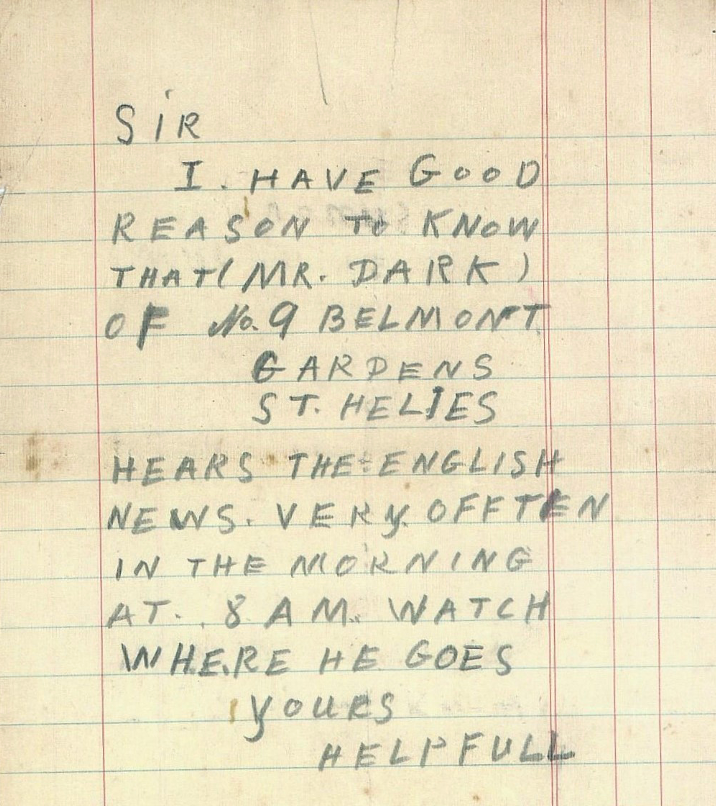 SIR
I. HAVE GOOD
REASON TO KNOW
THAT (MR. DARK)
OF No. 9 BELMONT
GARDENS
ST. HELIES
HEARS THE ENGLISH
NEWS. VERY. OFFTEN
IN THE MORNING
AT. 8 A M. WATCH
WHERE HE GOES
YOURS
HELPFULL